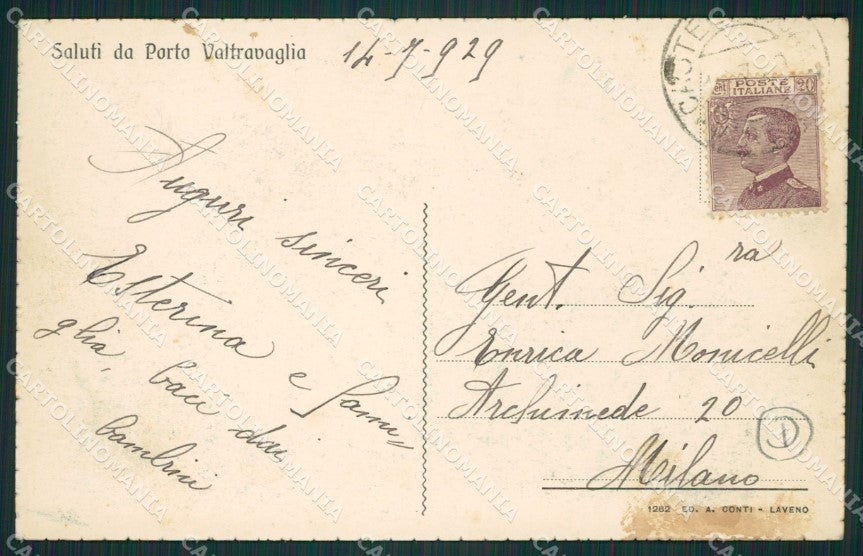 Saluti da Porto Valtravaglia
14-7-929
POSTE
ITALIANE
20
Auguri sinceri
Esterina e fami=
glia, baci dai
bambini
Gent. Sig.ra
Enrica Monicelli
Archimede 20
Milano
1262 ED. A. CONTI - LAVENO
CARTOLINOMANIA